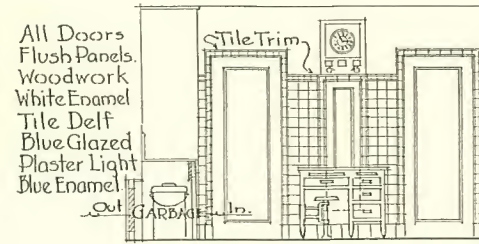 All Doors
Flush Panels.
Woodwork
White Enamel
Tile Delf
Blue Glazed
Plaster Light
Blue Enamel.
Tile Trim
Out GARBAGE In.